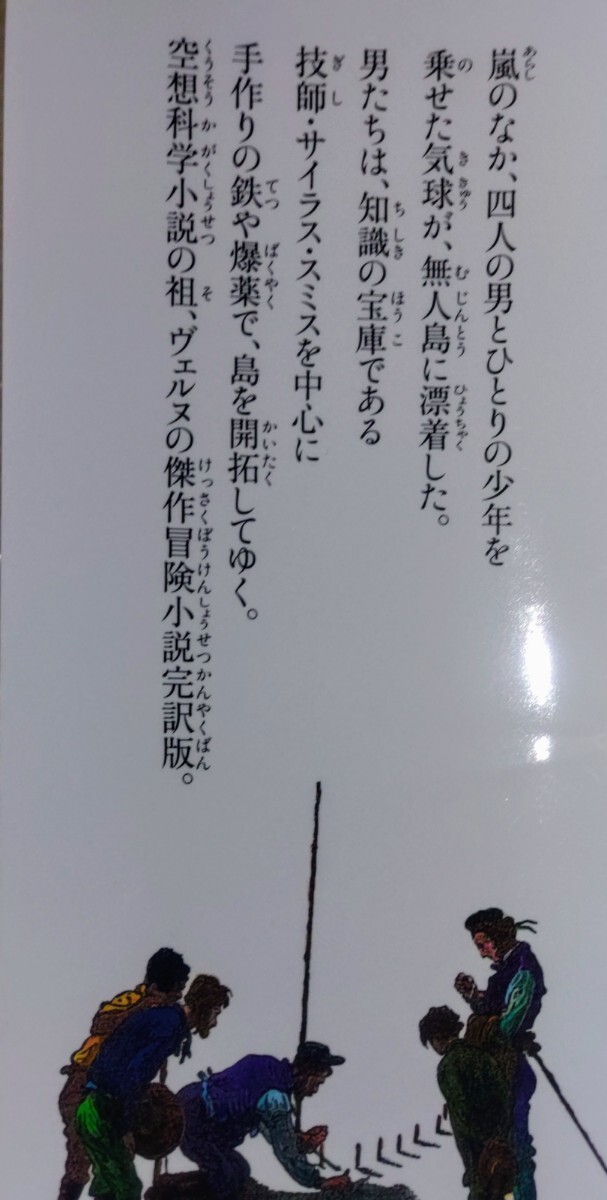 嵐のなか、四人の男とひとりの少年を
乗せた気球が、無人島に漂着した。
男たちは、知識の宝庫である
技師・サイラス・スミスを中心に
手作りの鉄や爆薬で、島を開拓してゆく。
空想科学小説の祖、ヴェルヌの傑作冒険小説完訳版。